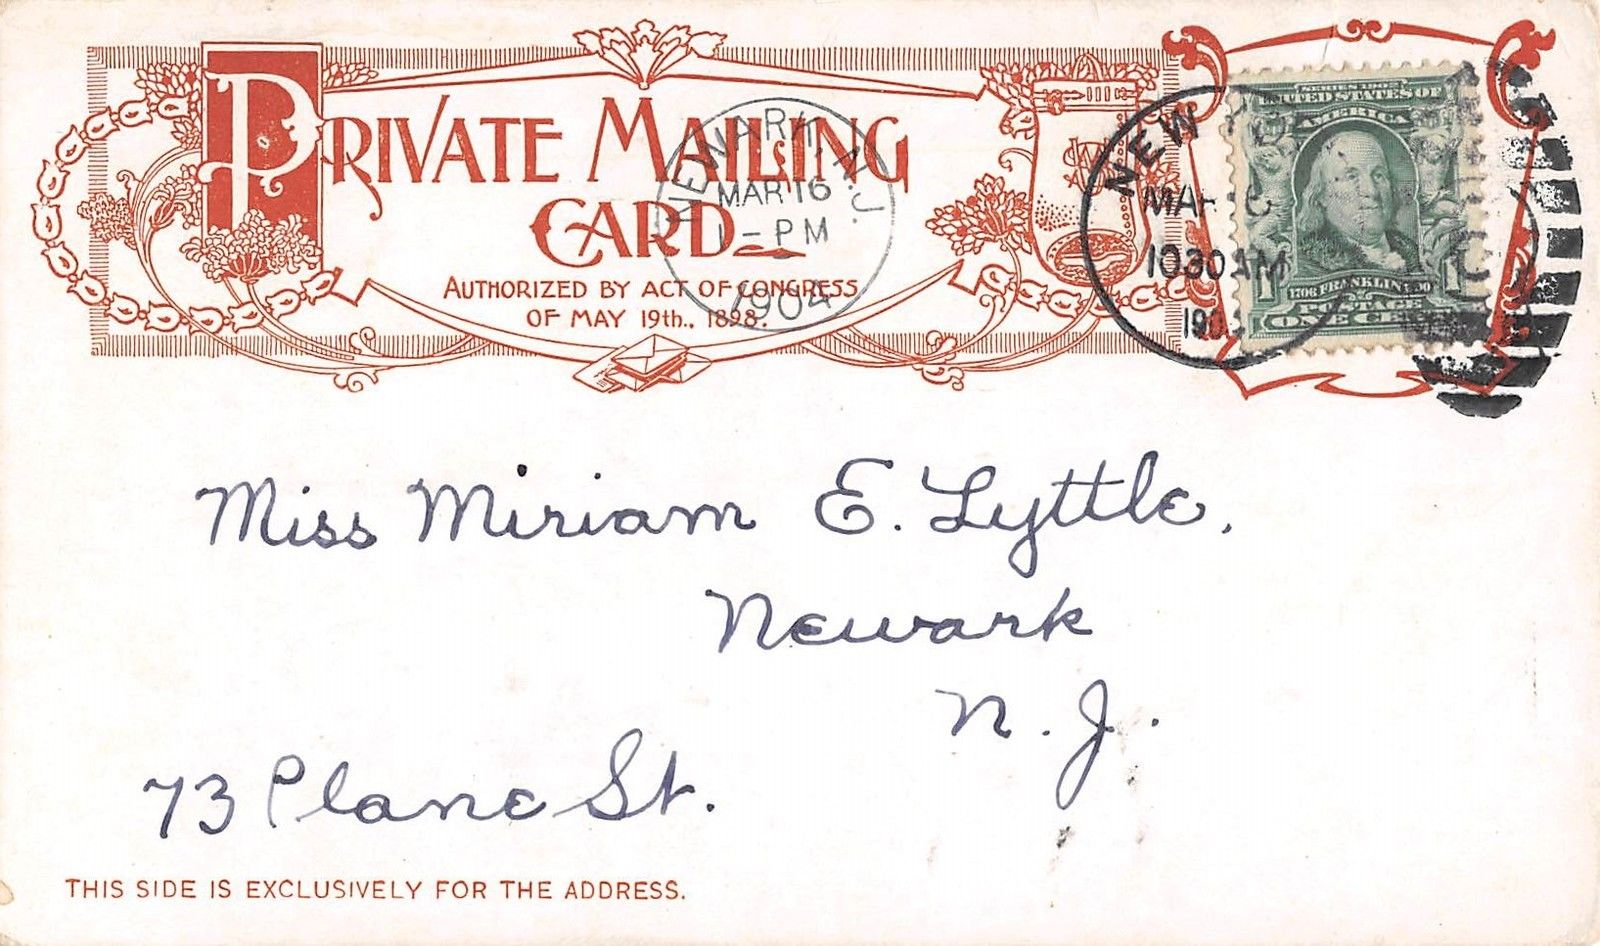 PRIVATE MAILING
CARD
AUTHORIZED BY ACT OF CONGRESS
OF MAY 19th., 1898.
NEWARK, N.J.
MAR 16
1 - PM
1904
NEW
10 30 AM
UNITED STATES OF
AMERICA
1706 FRANKLIN 1790
1 1
ONE CENT
Miss Miriam E. Lyttle.
Newark
N. J.
73 Plane St.
THIS SIDE IS EXCLUSIVELY FOR THE ADDRESS.